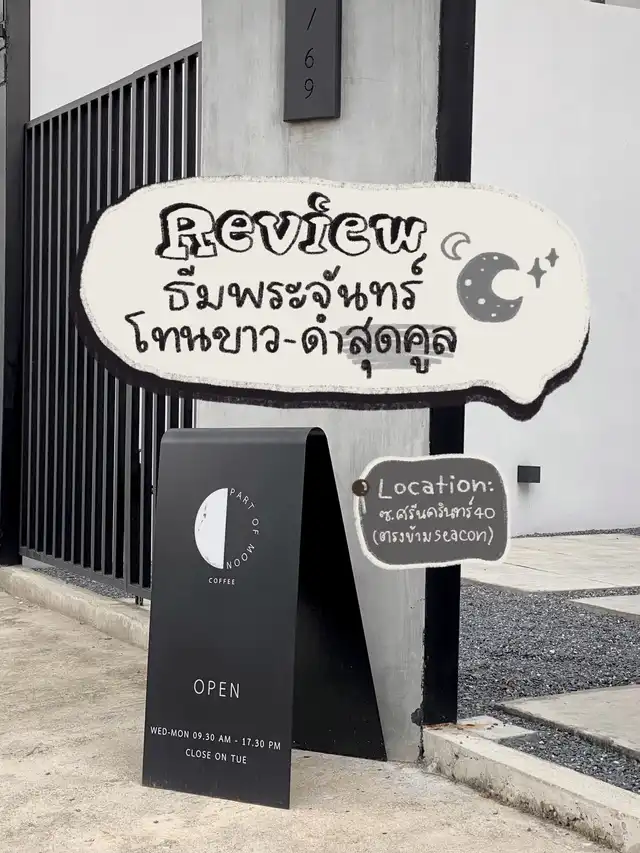 /69
Review
ธีมพระจันทร์
โทนขาว-ดำสุดคูล
Location:
ซ.ศรีนครินทร์40
(ตรงข้าม Seacon)
PART OF MOON
COFFEE
OPEN
WED-MON 09.30 AM - 17.30 PM
CLOSE ON TUE